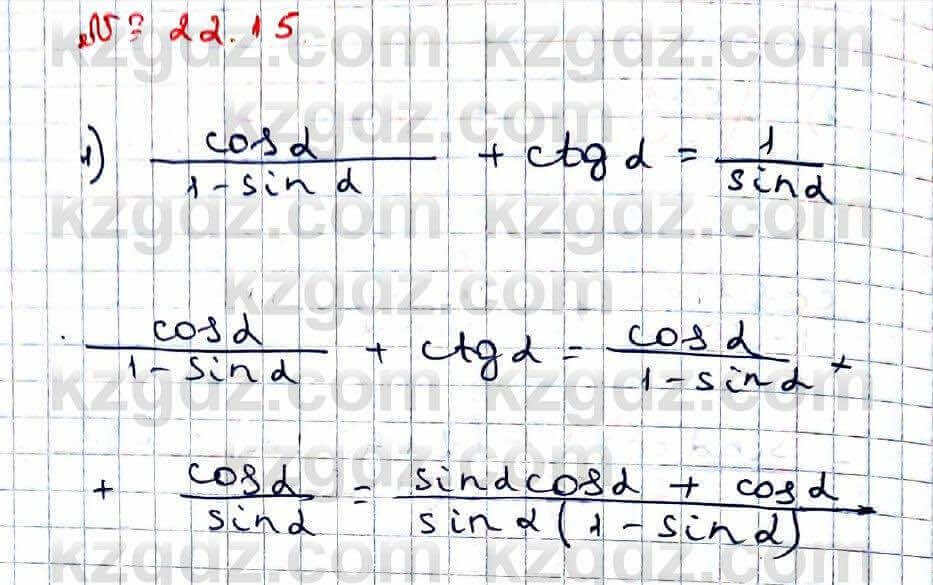 № 22.15
kzgdz.com
1) cosα / (1 - sin α) + ctg α = 1 / sinα
cosα / (1 - sinα) + ctgα = cosα / (1 - sinα) +
+ cosα / sinα = (sinαcosα + cosα) / (sinα(1 - sinα))